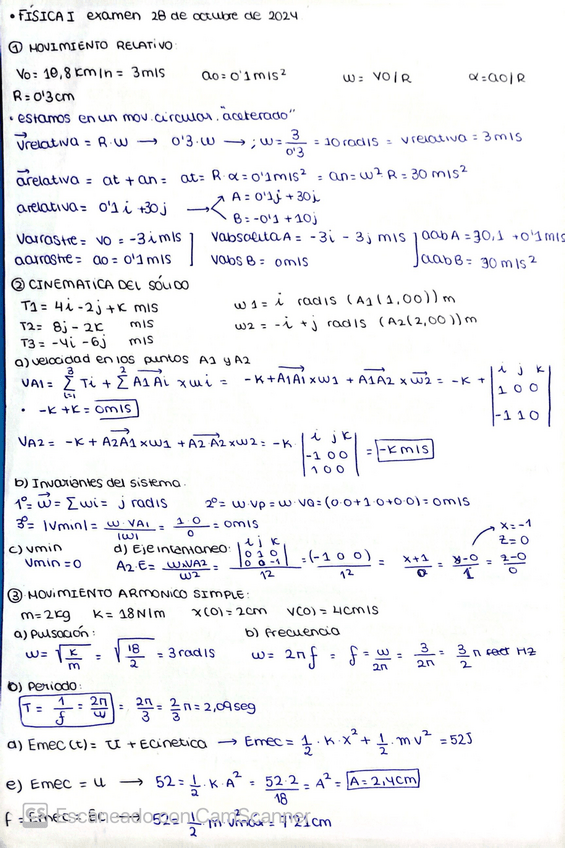 • FÍSICA I examen 28 de octubre de 2024
① MOVIMIENTO RELATIVO:
V0 = 10,8 km/h = 3 m/s a0 = 0'1 m/s² ω = V0/R α = a0/R
R = 0'3 cm
• estamos en un mov. circular "acelerado"
Vrelativa = R·ω → 0'3·ω → ; ω = 3/0'3 = 10 rad/s = Vrelativa = 3 m/s
arelativa = at + an = at = R·α = 0'1 m/s² = an = ω²·R = 30 m/s²
arelativa = 0'1 i + 30 j → A = 0'1j + 30j
B = -0'1 + 10j
Varrastre = V0 = -3i m/s ] Vabsoluta A = -3i - 3j m/s ] aabA = 30,1 + 0'1 m/s
aarrastre = a0 = 0'1 m/s ] Vabs B = 0 m/s ] aabB = 30 m/s²
② CINEMÁTICA DEL SÓLIDO
T1 = 4i - 2j + k m/s ω1 = i rad/s (A1(1,00)) m
T2 = 8j - 2k m/s ω2 = -i + j rad/s (A2(2,00)) m
T3 = -4i - 6j m/s
a) velocidad en los puntos A1 y A2
VA1 = Σ Ti + Σ A1Ai × ωi = -k + A1A1 × ω1 + A1A2 × ω2 = -k + | i j k | 1 0 0 | -1 1 0 |
• -k + k = 0 m/s
VA2 = -k + A2A1 × ω1 + A2A2 × ω2 = -k · | i j k | -1 0 0 | 1 0 0 | = -k m/s
b) Invariantes del sistema.
1º = ω = Σωi = j rad/s 2º = ω·Vp = ω·VQ = (0·0 + 1·0 + 0·0) = 0 m/s
3º = |Vmin| = ω·VA1 / |ω| = 1·0 / 0 = 0 m/s
c) Vmin d) Eje instantaneo: | i j k | 0 1 0 | 0 0 -1 | / 1² = (-1 0 0) / 1² = x+1 / 0 = y-0 / 1 = z-0 / 0 → x = -1
z = 0
Vmin = 0 A2·E = ω·VA2 / ω²
③ MOVIMIENTO ARMONICO SIMPLE:
m = 2kg K = 18 N/m x(0) = 2cm V(0) = 4cm/s
a) Pulsación: b) Frecuencia
ω = √K/m = √18/2 = 3 rad/s ω = 2πf = f = ω/2π = 3/2π = 3/2 π Hz
b) Periodo:
T = 1/f = 2π/ω = 2π/3 = 2/3 π = 2,09 seg
d) Emec(t) = U + Ecinetica → Emec = 1/2 · K · x² + 1/2 · m v² = 52J
e) Emec = U → 52 = 1/2 · K · A² = 52·2/18 = A² = A = 2,4cm
f = Emec = Ec → 52 = 1/2 · m · Vmax² = 7'21cm
CS Escaneado con CamScanner